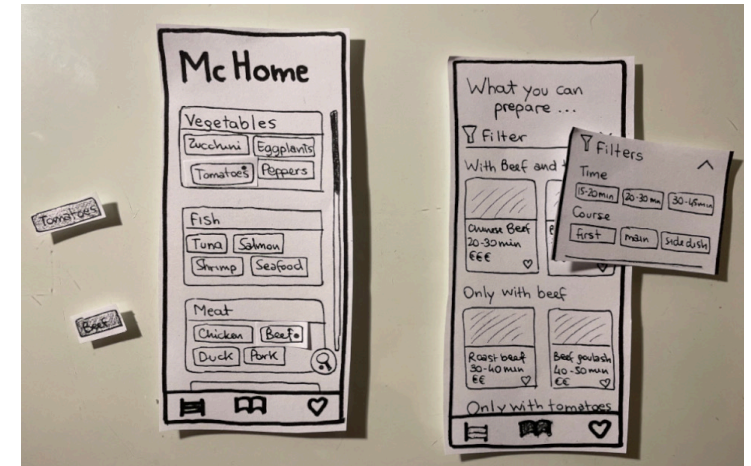 Mc Home
Vegetables
Zucchini Eggplants
Tomatoes Peppers
Fish
Tuna Salmon
Shrimp Seafood
Meat
Chicken Beef
Duck Pork
Tomatoes
Beef
What you can
prepare ...
Filter
With Beef and
Chinese Beef
20-30 min
€€€
Only with beef
Roast beef Beef goulash
30-40 min 40-50 min
€€ €€
Only with tomatoes
Filters
Time
15-20min 20-30 min 30-45min
Course
first main side dish